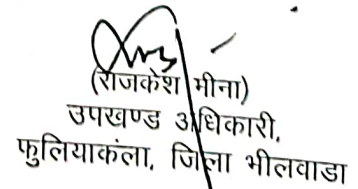 (राजकेश मीना)
उपखण्ड अधिकारी,
फुलियाकंला, जिला भीलवाडा